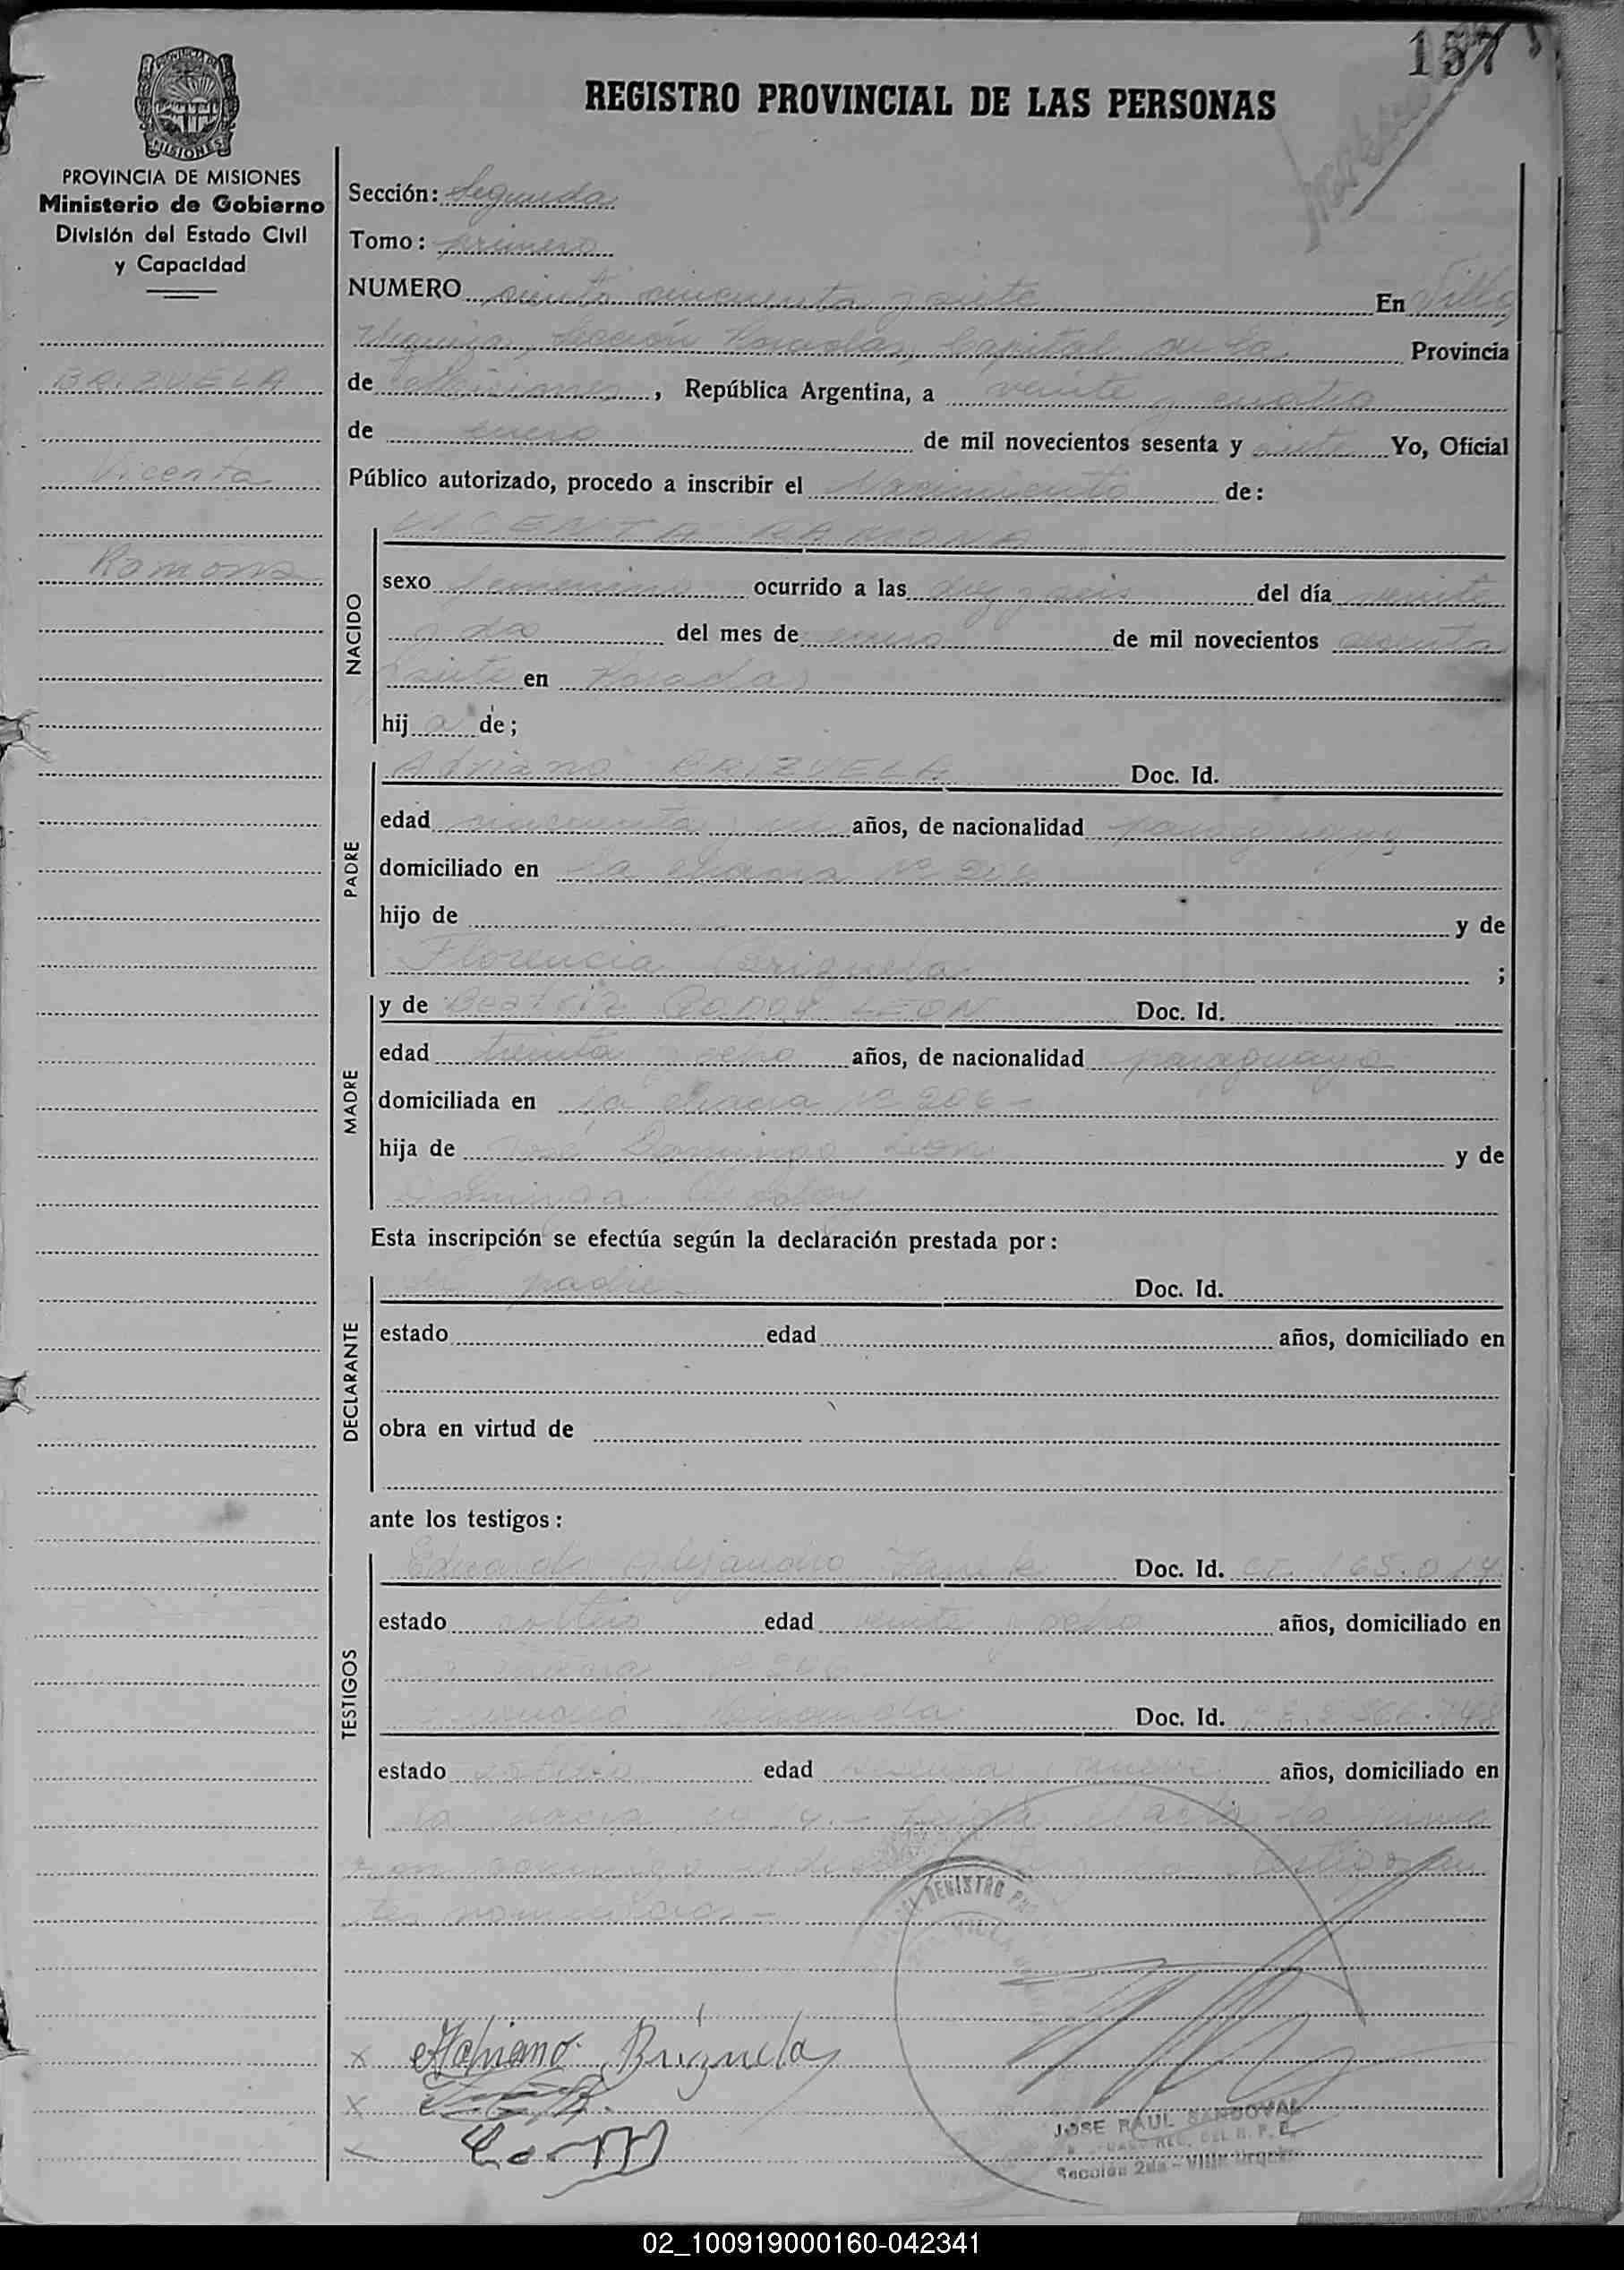 157
REGISTRO PROVINCIAL DE LAS PERSONAS
PROVINCIA DE MISIONES
MISIONES
PROVINCIA DE MISIONES
Ministerio de Gobierno
División del Estado Civil
y Capacidad
BRIZUELA
Vicenta
Ramona
Sección: Segunda
Tomo: primero
NUMERO ciento cincuenta y siete En Villa
Urquiza, Sección Posadas, Capital de la Provincia
de Misiones, República Argentina, a veinte y cuatro
de enero de mil novecientos sesenta y siete Yo, Oficial
Público autorizado, procedo a inscribir el Nacimiento de:
NACIDO
VICENTA RAMONA
sexo femenino ocurrido a las diez y seis del día veinte
y dos del mes de enero de mil novecientos sesenta
y siete en Posadas
hij a de;
PADRE
Adriano BRIZUELA Doc. Id.
edad cincuenta y un años, de nacionalidad paraguaya
domiciliado en la chacra Nº 206
hijo de y de
Florencia Brizuela ;
MADRE
y de Beatriz GODOY LEON Doc. Id.
edad treinta y ocho años, de nacionalidad paraguaya
domiciliada en la chacra Nº 206 -
hija de José Domingo León y de
Godoy
Esta inscripción se efectúa según la declaración prestada por:
DECLARANTE
el padre - Doc. Id.
estado edad años, domiciliado en
obra en virtud de
ante los testigos:
TESTIGOS
Eduardo Alejandro Doc. Id. CI. 165.014
estado soltero edad veinte y ocho años, domiciliado en
chacra Nº 206
Miranda Doc. Id.
estado soltero edad y nueve años, domiciliado en
la chacra - Leída el acta la firma
conmigo
nombrados -
DEL REGISTRO
VILLA
x Adriano Brizuela
x
JOSE RAUL SANDOVAL
Sección 2da - Villa Urquiza
02_100919000160-042341